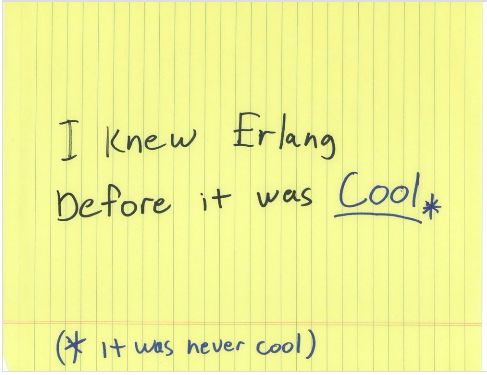 I knew Erlang
before it was Cool*
(* it was never cool)